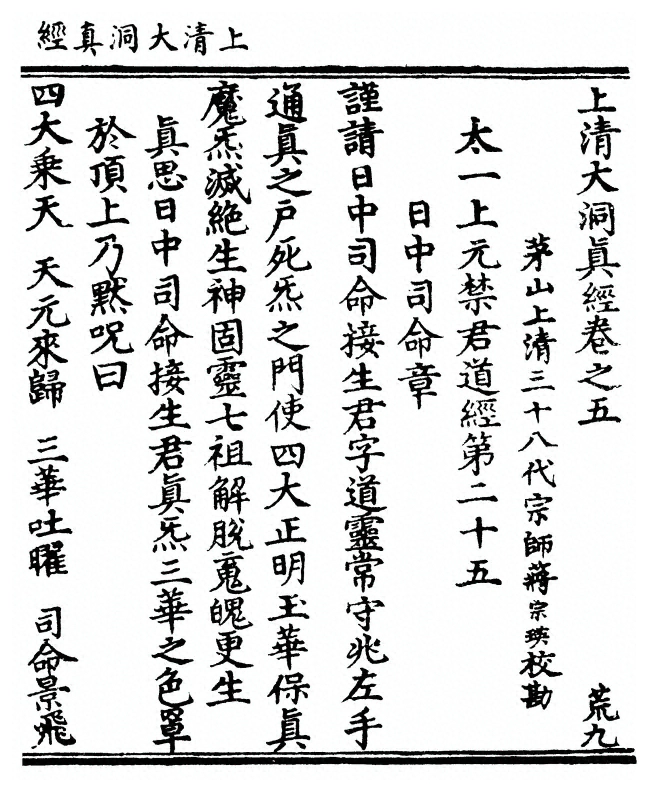 上清大洞真經
上清大洞眞經卷之五
荒九
茅山上清三十八代宗師蔣宗瑛校勘
太一上元禁君道經第二十五
日中司命章
謹請日中司命接生君字道靈常守兆左手
通眞之戸死炁之門使四大正明玉華保眞
魔炁滅絶生神固靈七祖解脫䰟魄更生
眞思日中司命接生君眞炁三華之色罩
於頂上乃默呪曰
四大乗天 天元來歸 三華吐曜 司命景飛